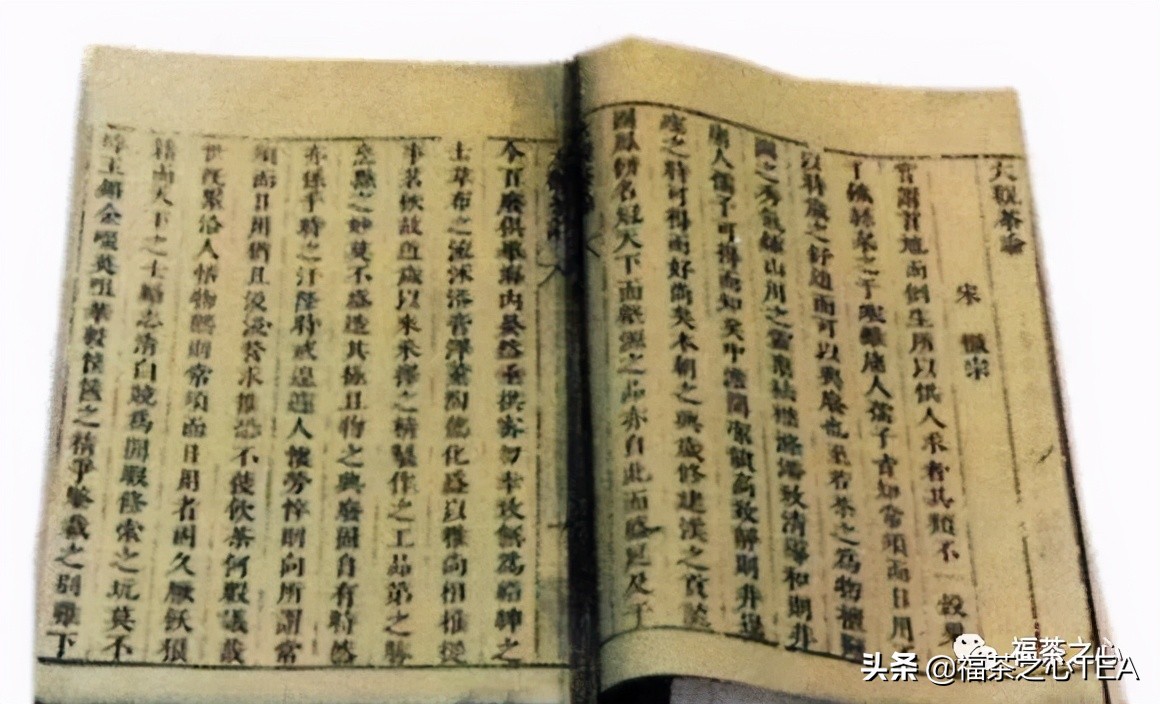 大觀茶論
宋 徽宗
嘗謂首地而倒生所以供人求者其類不一穀粟
于饑絲枲之于寒雖庸人孺子皆知常須而日用
以時歲之舒廹而可以興廢也至若茶之爲物擅甌
閩之秀氣鍾山川之靈禀祛襟滌滯致清導和則非
庸人孺子可得而知矣冲澹閒潔韻高致靜則非遑
遽之時可得而好尚矣本朝之興歲修建溪之貢龍
團鳳餅名冠天下而壑源之品亦自此而盛延及于
今百廢俱舉海内晏然垂拱密勿幸致無爲縉紳之
士韋布之流沐浴膏澤薰陶德化盛以雅尚相推從
事茗飲故近歲以來采擇之精製作之工品第之勝
烹點之妙莫不盛造其極且物之興廢固自有時然
亦係乎時之汙隆時或遑遽人懷勞悴則向所謂常
須而日用猶且汲汲營求惟恐不獲飲茶何暇議哉
世旣累洽人恬物熙則常須而日用者固久厭飫狼
籍而天下之士勵志清白競爲閒暇修索之玩莫不
碎玉鏘金啜英咀華較筐篋之精爭鑒裁之别雖下
福茶之心
头条 @福茶之心TEA